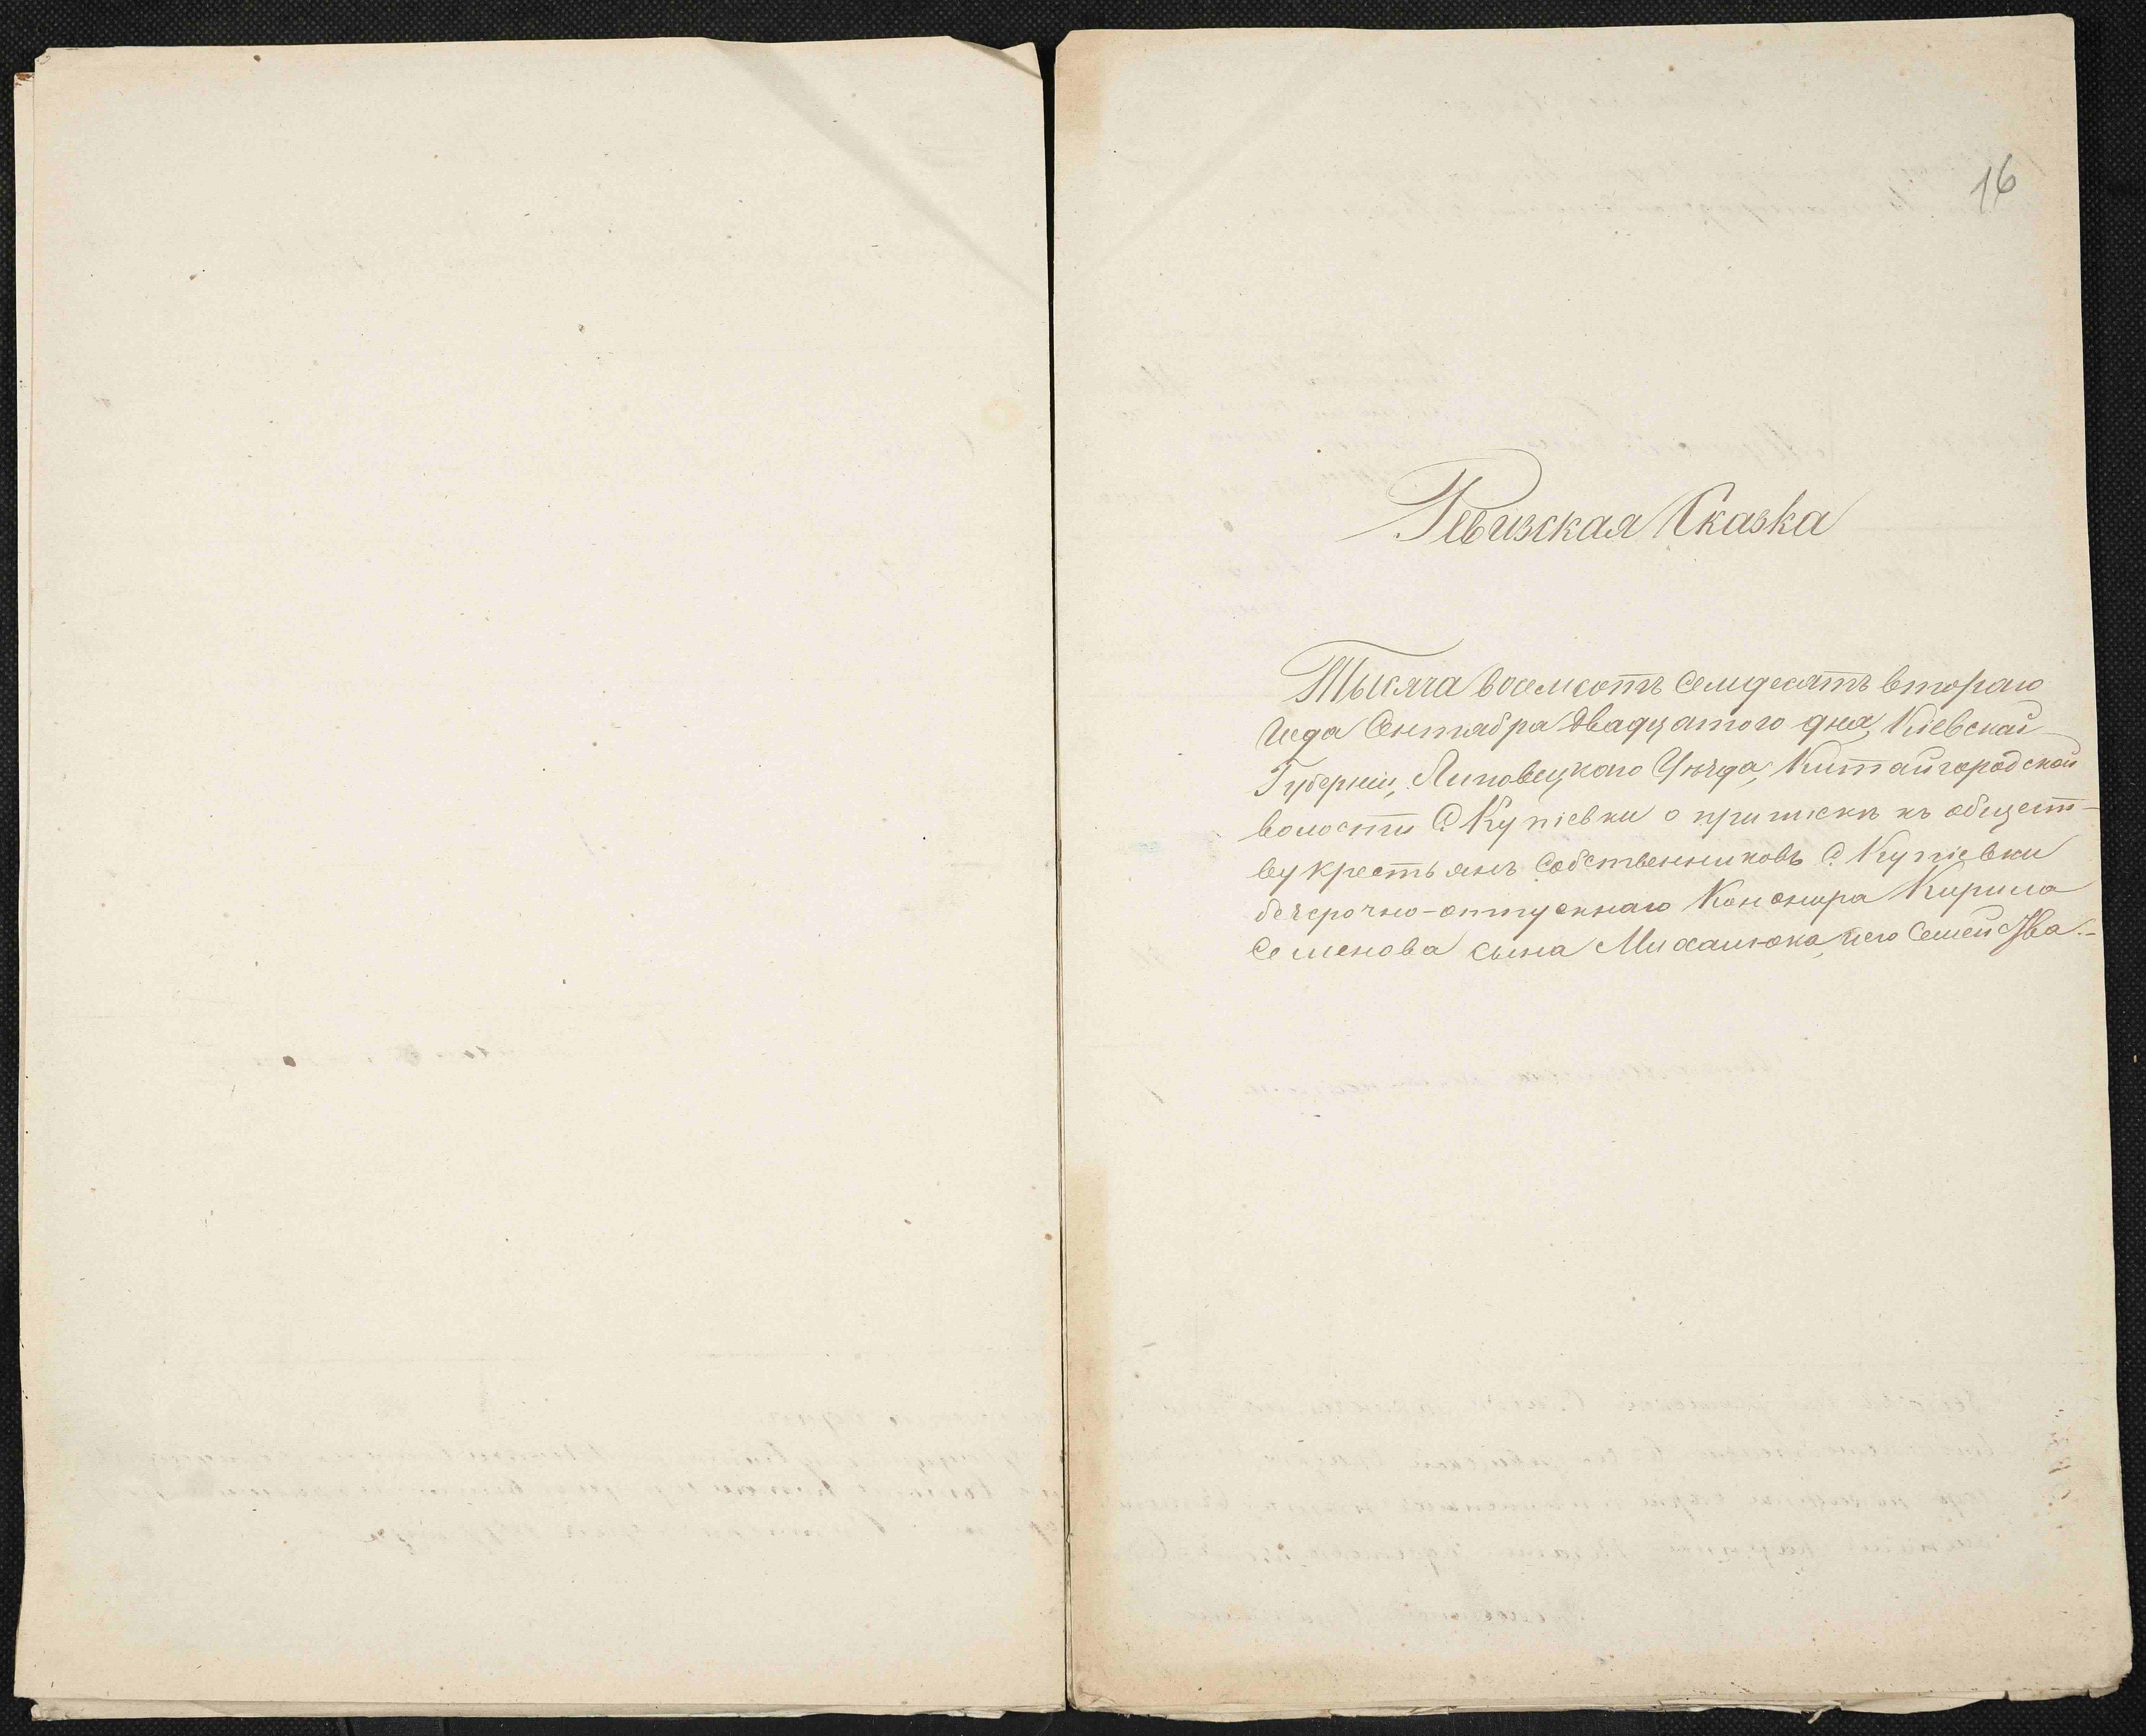 16
Ревизская Сказка
Тысяча восемсотъ семдесятъ втораго
года Сентября двадцатого дня, Кіевской
Губерніи, Липовецкаго Уѣзда, Китайгородской
волости С. Купіевки о припискѣ къ общест-
ву крестьянъ собственниковъ С. Купіевки
безсрочно-отпускнаго Канонира Кирила
Семенова сына Михалюка, и его семейства.-